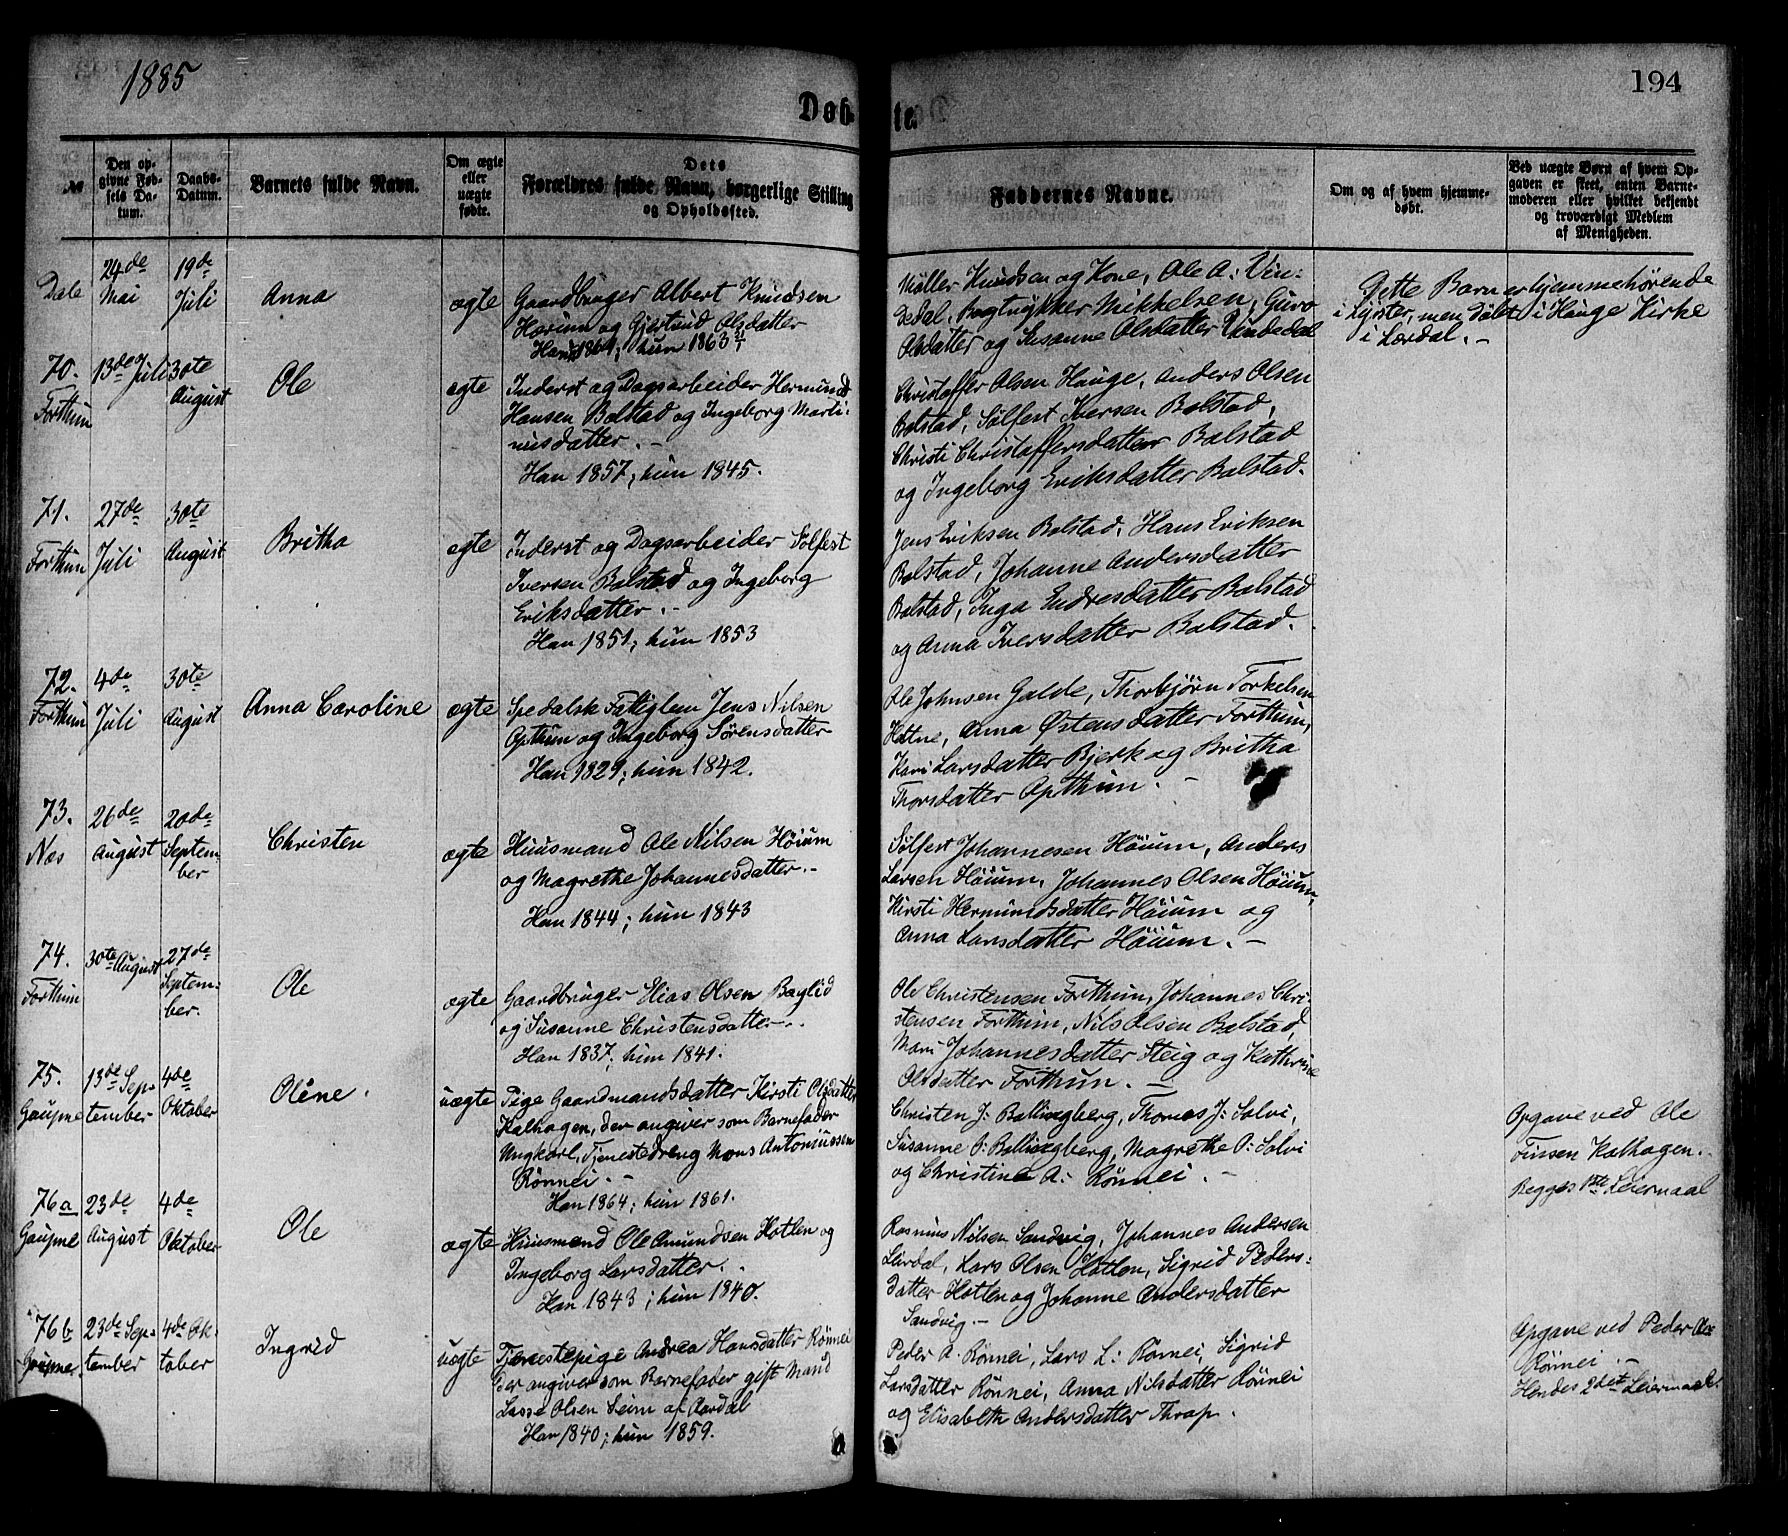 1885
Døb te.
194
№
Den opgivne Fødsels Datum.
Daabs-Datum.
Barnets fulde Navn.
Om ægte eller uægte fødte.
Dets Forældres fulde Navn, borgerlige Stilling og Opholdssted.
Faddernes Navne.
Om og af hvem hjemmedøbt.
Ved uægte Børn af hvem Opgaven er skeet, enten Barnemoderen eller hvilket bekjendt og troværdigt Medlem af Menigheden.
Dale
24de Mai
19de Juli
Anna
ægte
Gaardbruger Albert Knudsen
Hærum og Gjertrud Olsdatter
Han 1861; hun 1863
Møller Knudsen og Kone, Ole A: Vin-
dedal, Bogtrykker Mikkelsen, Guro
Olsdatter og Susanne Olsdatter Vindedal
Dette Barn er hjemmehørende
i Lyster, men døbt i Hauge Kirke
i Lærdal. -
70.
Forthun
13de Juli
30te August
Ole
ægte
Inderst og Dagsarbeider Hermund
Hansen Bolstad og Ingeborg Marti-
nusdatter. -
Han 1857; hun 1845.
Christoffer Olsen Hauge, Anders Olsen
Bolstad, Sølfest Iversen Bolstad,
Christi Christoffersdatter Bolstad
og Ingeborg Eriksdatter Bolstad.
71.
Forthun
27de Juli
30te August
Britha
ægte
Inderst og Dagsarbeider Sølfest
Iversen Bolstad og Ingeborg
Eriksdatter. -
Han 1851; hun 1853
Jens Eriksen Bolstad, Hans Eriksen
Bolstad, Johanne Andersdatter
Bolstad, Inga Endresdatter Bolstad
og Anna Iversdatter Bolstad.
72.
Forthun
4de Juli
30te August
Anna Caroline
ægte
Spedalsk Fattiglem Jens Nilsen
Opthun og Ingeborg Sørensdatter
Han 1829; hun 1842.
Ole Johnsen Galde, Thorbjørn Torkelsen
Anna Østensdatter Forthun,
Kari Larsdatter Bjerk og Britha
Thorsdatter Opthun. -
73.
Næs
26de August
20de Septem-
ber
Christen
ægte
Huusmand Ole Nilsen Høium
og Magrethe Johannesdatter. -
Han 1844; hun 1843
Sølfest Johannesen Høium, Anders
Larsen Høium, Johannes Olsen Høium,
Kirsti Hermundsdatter Høium og
Anna Larsdatter Høium. -
74.
Forthun
30te August
27de Septem-
ber.
Ole
ægte
Gaardbruger Elias Olsen Bøglid
og Susanne Christensdatter -.
Han 1837; hun 1841.
Ole Christensen Forthun, Johannes Chri-
stensen Forthun, Nils Olsen Bolstad,
Mari Johannesdatter Steig og Kathrine
Olsdatter Forthun. -
75.
Gaupne
13de Sep-
tember
4de Oktober
Oline.
uægte
Pige Gaardmandsdatter Kirsti Olsdatter
Kalhagen, der angiver som Barnefader
Ungkarl, Tjenestedreng Mons Antoniussen
Rønnei. -
Han 1864; hun 1861.
Christen J: Bollingberg, Thomas J: Solvi,
Susanne P: Bollingberg, Magrethe P: Solvi
og Christine A: Rønnei -
Opgave ved Ole
Finsen Kalhagen. -
Begges 1ste Leiermaal
76a
Gaupne
23de August
4de Oktober
Ole
ægte
Huusmand Ole Amundsen Hotlen og
Ingeborg Larsdatter. .
Han 1843; hun 1840.
Rasmus Nilsen Sandvig, Johannes Andersen
Leirdal, Lars Olsen Hotlen, Sigrid Peders-
datter Hotlen og Johanne Andersdatter
Sandvig. -
76b
Gaupne
23de Sep-
tember
4de Ok-
tober
Ingrid
uægte
Tjenestepige Andrea Hansdatter Rønnei
der angiver som Barnefader gift Mand
Lasse Olsen Seim af Aardal
Han 1840; hun 1859.
Peder A. Rønnei, Lars L: Rønnei, Sigrid
Larsdatter Rønnei, Anna Nilsdatter Rønnei
og Elisabeth Andersdatter Thrap.
Opgave ved Peder
Rønnei. -
Hendes 2det Leiermaal.